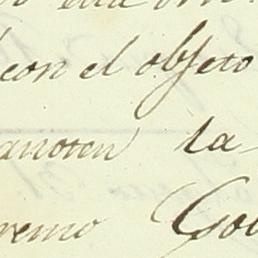 con el objeto
anoten la
remo Gob